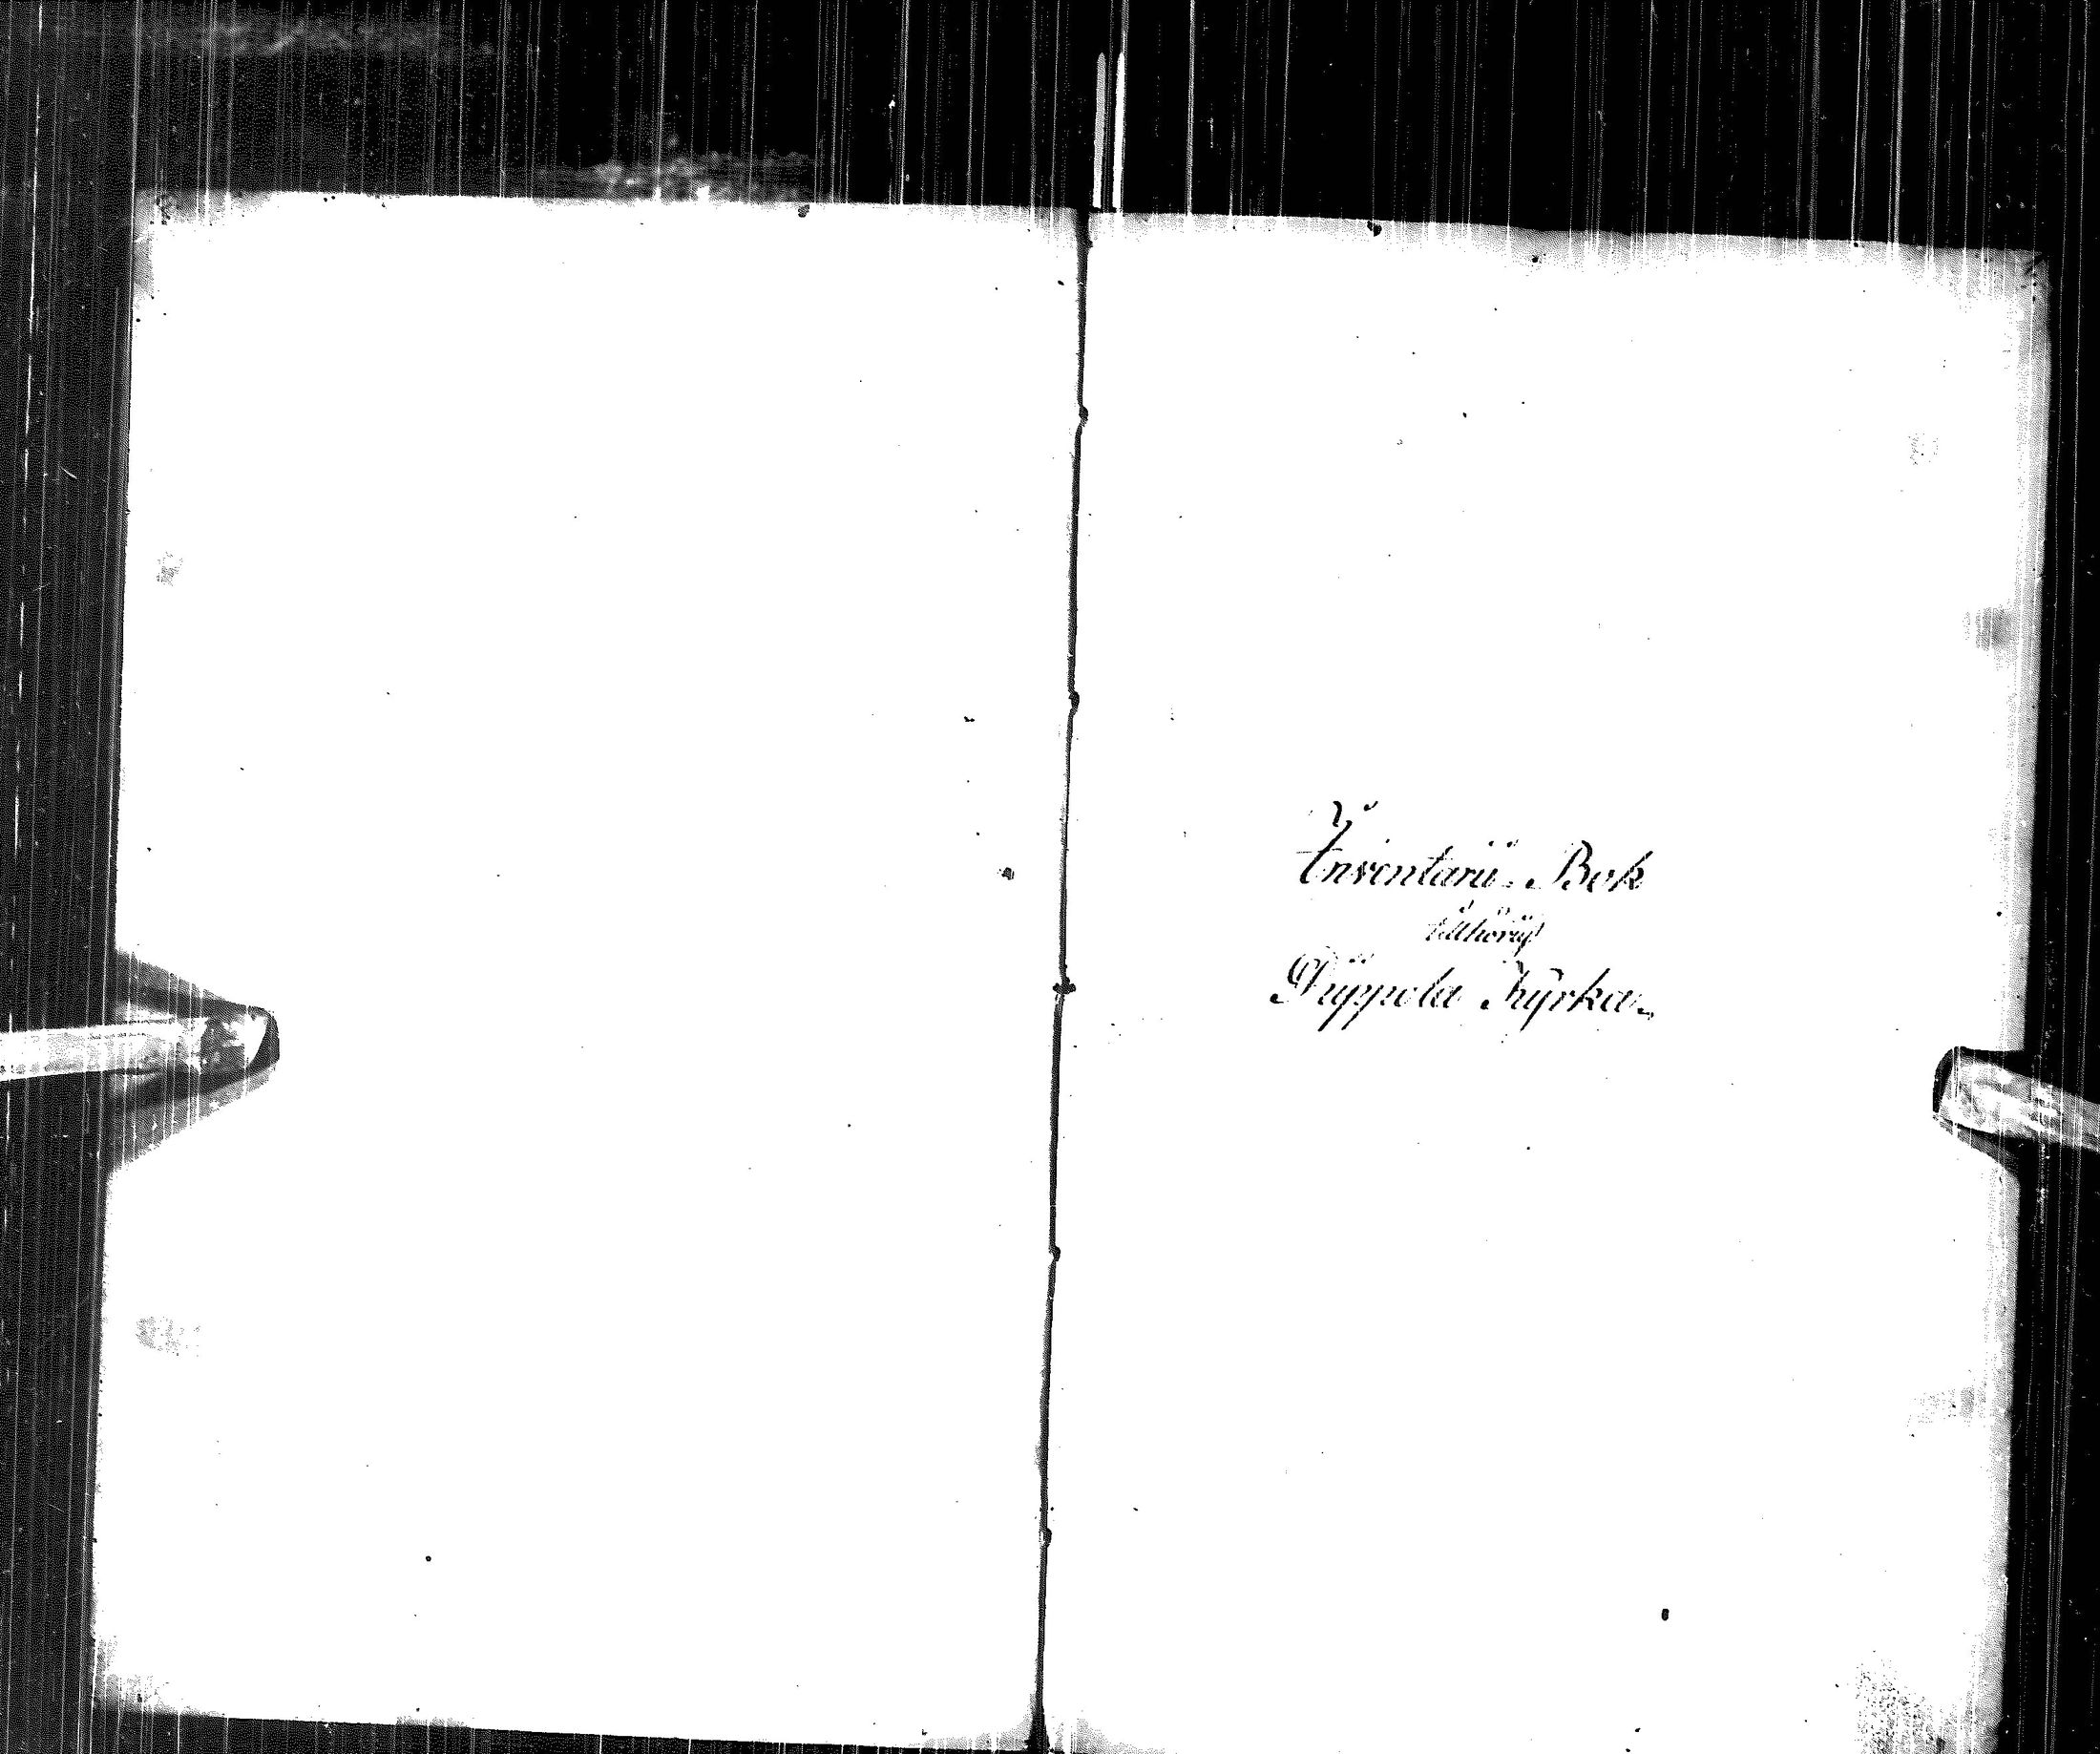 Inventarii-Bok
tillhörig
Pyppola Kyrka.